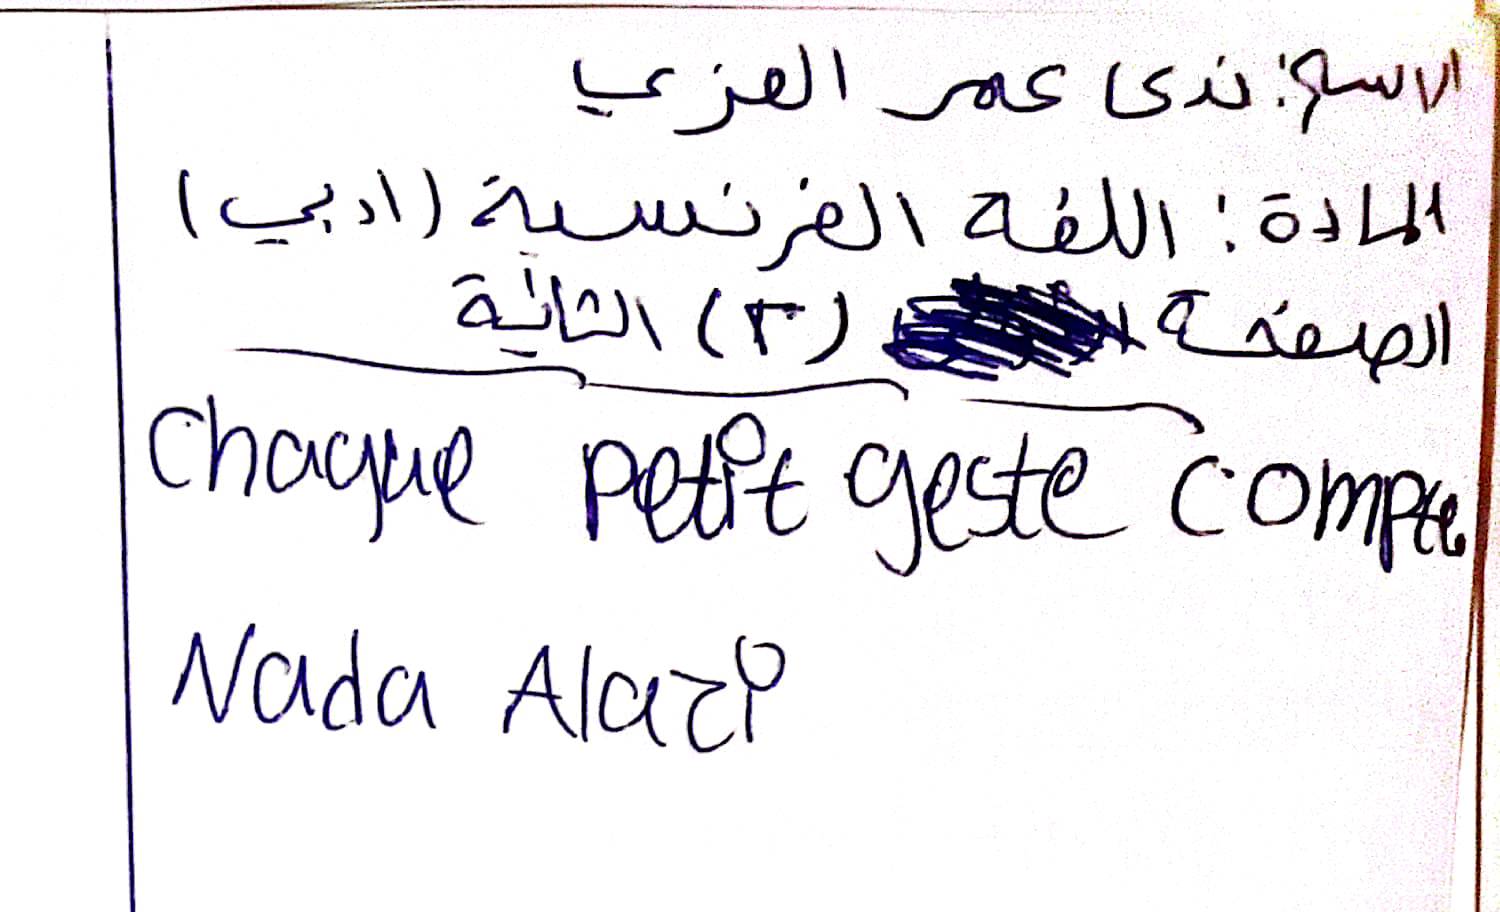 الاسم: ندى عمر العزي
المادة: اللغة الفرنسية (ادبي)
الصفحة (٢) الثانية
Chaque petit geste compte
Nada Alazi